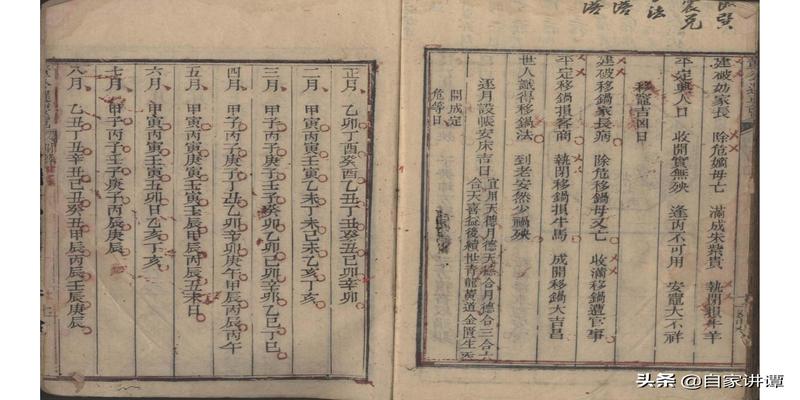 建破妨家長　除危嫡母亡　滿成朱紫貴　執閉損牛羊
平定興人口　收開實無殃　逢丙不可用　安竈大不祥
移竈吉凶日
建破移鍋家長病　除危移鍋母又亡　收滿移鍋遭官事
平定移鍋損客商　執閉移鍋損牛馬　成開移鍋大吉昌
世人識得移鍋法　到老安然少禍殃
逐月設帳安床吉日
宜用天德月德天德合月德合三合六
合天喜益後續世青龍黃道金匱生炁
開成定
危等日
正月　乙卯丁酉癸酉乙丑丁丑癸丑己卯辛卯
二月　甲寅丙寅壬寅乙未丁未己未乙亥丁亥
三月　甲子丙子庚子壬子癸卯乙卯己卯辛卯乙巳丁巳
四月　甲子丙子庚子丁丑乙卯辛卯庚午甲辰丙辰丙午
五月　甲寅丙寅庚寅壬寅壬辰甲辰丙辰丑未日
六月　甲寅丙寅壬寅丑卯日乙亥丁亥
七月　甲子丙子壬子庚子丙辰庚辰
八月　乙丑丁丑辛丑己丑癸丑甲辰丙辰壬辰庚辰
头条 @自家讲谭